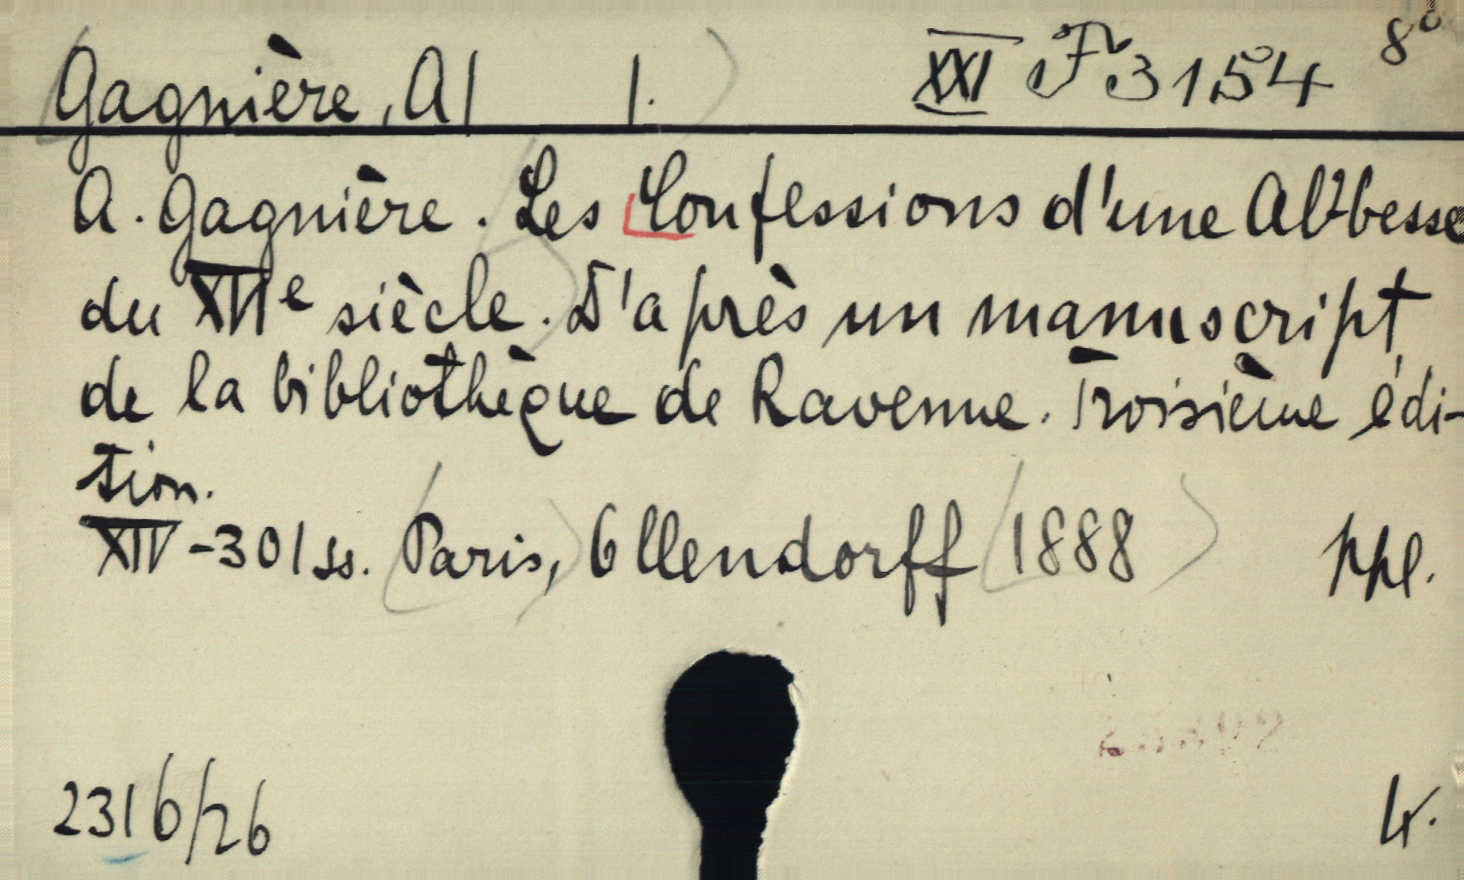 Gagnière, A| 1. XXI F 3154 8°
A. Gagnière. Les Confessions d'une Abbesse
du XVIe siècle. D'après un manuscript
de la bibliothèque de Ravenne. Troisième édi-
tion.
XIV-301 ss. Paris, Ollendorff 1888 ppl.
2316/26